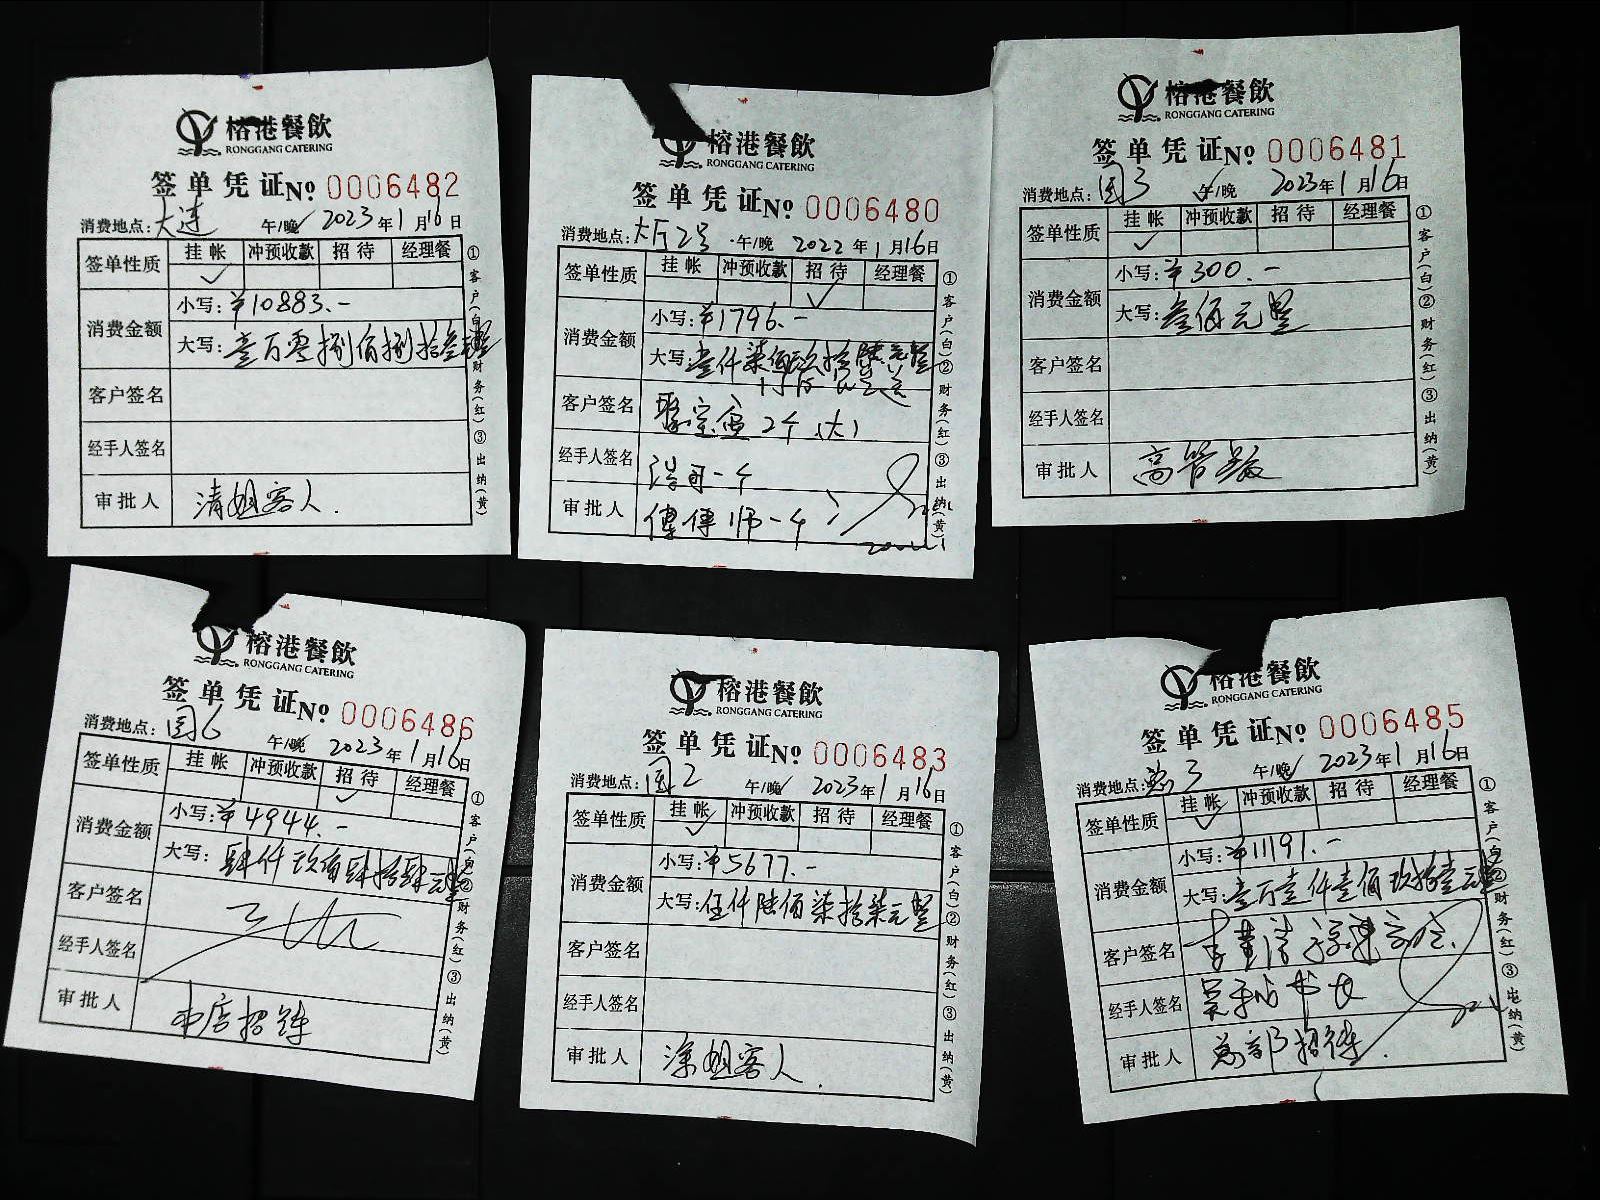 榕港餐飲
RONGGANG CATERING
签单凭证 № 0006482
消费地点：大连 午/晚 2023年1月16日
签单性质 挂帐 冲预收款 招待 经理餐
✓
消费金额 小写：¥10883.-
大写：壹万零捌佰捌拾叁元整
客户签名
经手人签名
审批人 清姐客人.
①客户（白）②财务（红）③出纳（黄）
榕港餐飲
RONGGANG CATERING
签单凭证 № 0006480
消费地点：大厅2号 午/晚 2022年1月16日
签单性质 挂帐 冲预收款 招待 经理餐
✓
消费金额 小写：¥1796.-
大写：壹仟柒佰玖拾陆元整
客户签名 聚宝盆2个（大）
经手人签名 一个
审批人 傅师一个
①客户（白）②财务（红）③出纳（黄）
榕港餐飲
RONGGANG CATERING
签单凭证 № 0006481
消费地点：园3 午/晚 2023年1月16日
签单性质 挂帐 冲预收款 招待 经理餐
✓
消费金额 小写：¥300.-
大写：叁佰元整
客户签名
经手人签名
审批人 高管餐
①客户（白）②财务（红）③出纳（黄）
榕港餐飲
RONGGANG CATERING
签单凭证 № 0006486
消费地点：园6 午/晚 2023年1月16日
签单性质 挂帐 冲预收款 招待 经理餐
✓
消费金额 小写：¥4944.-
大写：肆仟玖佰肆拾肆元整
客户签名
经手人签名
审批人 本店招待
①客户（白）②财务（红）③出纳（黄）
榕港餐飲
RONGGANG CATERING
签单凭证 № 0006483
消费地点：园2 午/晚 2023年1月16日
签单性质 挂帐 冲预收款 招待 经理餐
✓
消费金额 小写：¥5677.-
大写：伍仟陆佰柒拾柒元整
客户签名
经手人签名
审批人 涂姐客人.
①客户（白）②财务（红）③出纳（黄）
榕港餐飲
RONGGANG CATERING
签单凭证 № 0006485
消费地点：3 午/晚 2023年1月16日
签单性质 挂帐 冲预收款 招待 经理餐
✓
消费金额 小写：¥11191.-
大写：壹万壹仟壹佰玖拾壹元整
客户签名 李董请
经手人签名 书长
审批人 总部招待.
①客户（白）②财务（红）③出纳（黄）